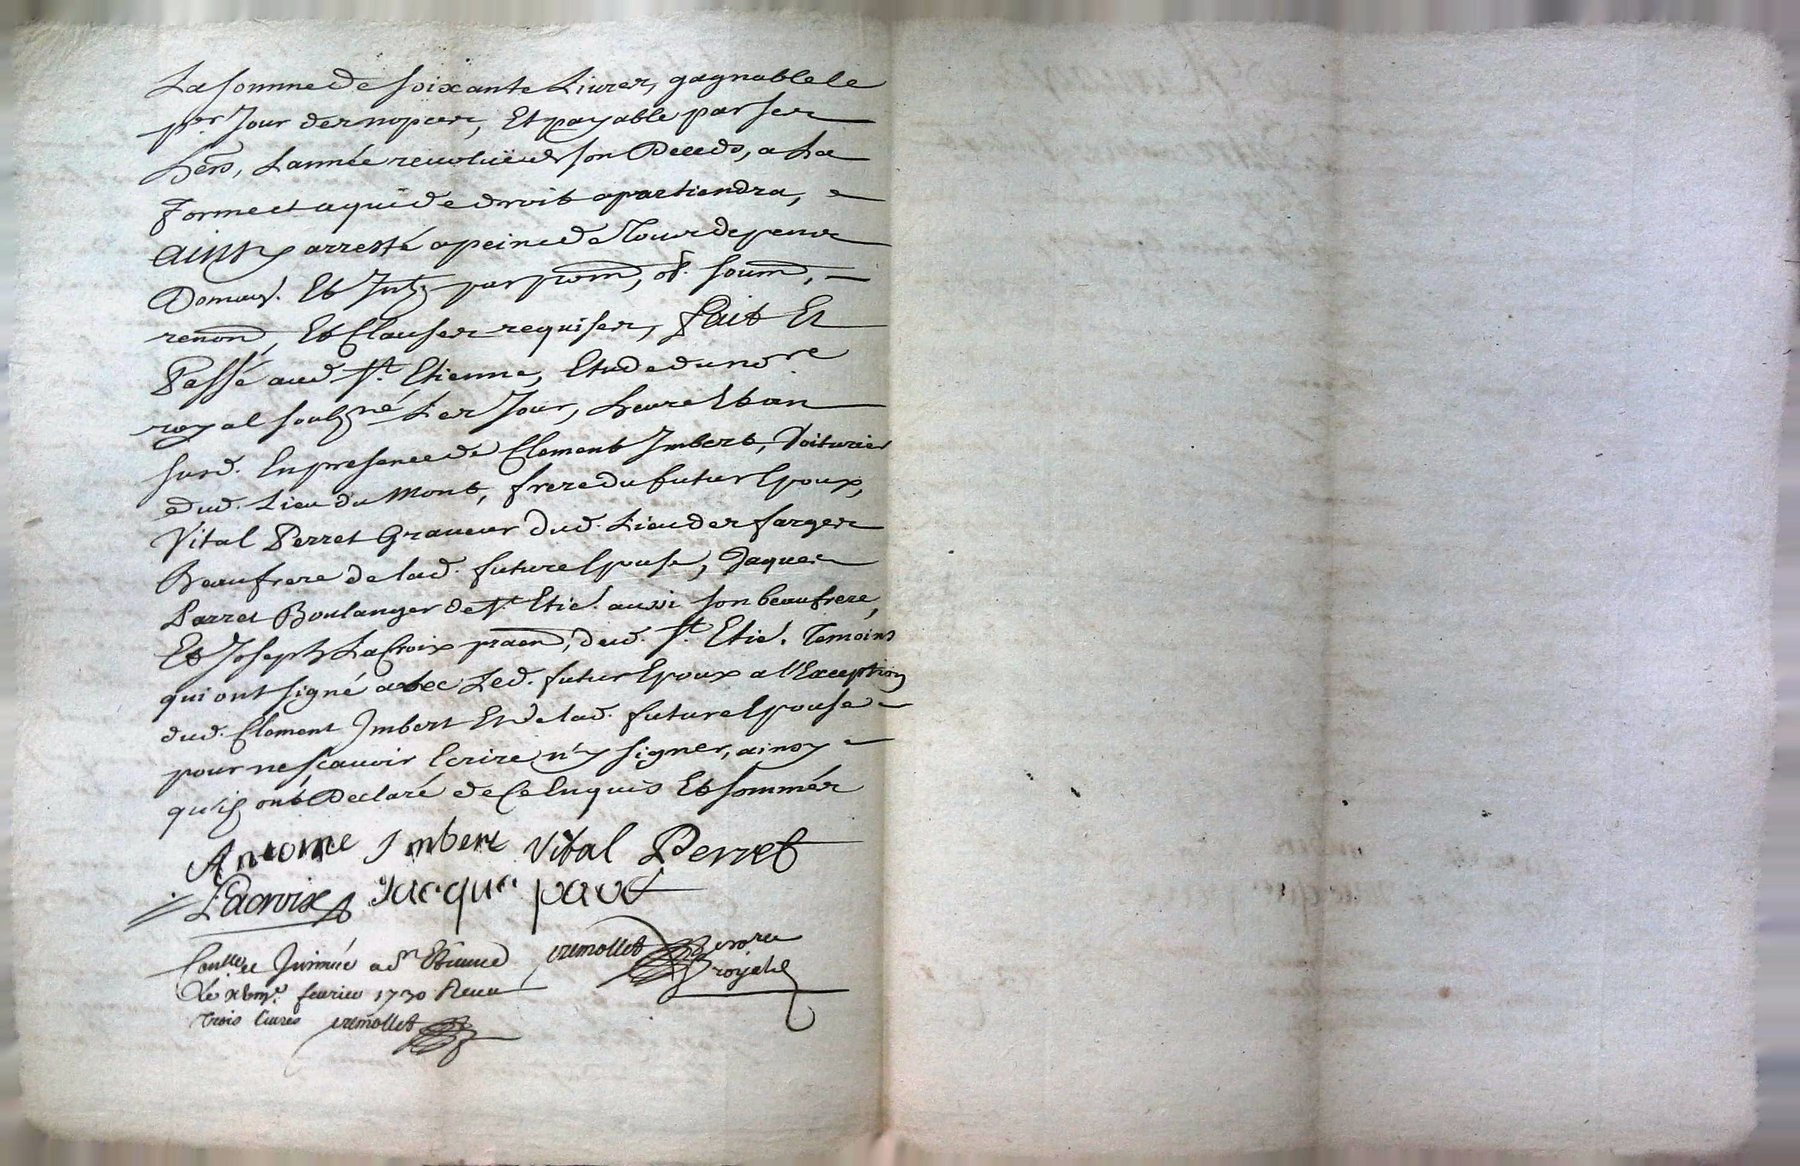 La somme de soixante Livres, gagnable le
pr. Jour des nopces, Et payable par ses
hers, Lannée revoluë de son Deceds, a La
forme et a qui de droit apartiendra,
ainsy arresté a peine de Tous depens
Domag. Et Inte. par prom, ob. soum,
renon, Et Clauses requises, fait Et
Passé aud. St. Etienne, Etude du nore.
royal soubzné Les Jour, heure Et an
susd. En presence de Clement Imbert, Voiturier
dud. Lieu du Mont, frere du futur Epoux,
Vital Perret Graveur dud. Lieu des farges
Beaufrere de lad. future Epouse, Jaques
Parret Boulanger de St. Etie. aussi son beaufrere,
Et Joseph LaCroix praen, dud. St. Etie. Temoins
qui ont signé avec Led. futur Epoux a l'Exception
dud. Clement Imbert Et de lad. future Epouse
pour ne scavoir Ecrire n'y signer, ainsy
qu'ils ont Declaré de Ce Enquis Et sommés
Antoine Imbert Vital Perret
Lacroix Jacque paret
Conllé. et Insinué a St Etienne
Le fevrier 1730 Receu
Trois livres
royal